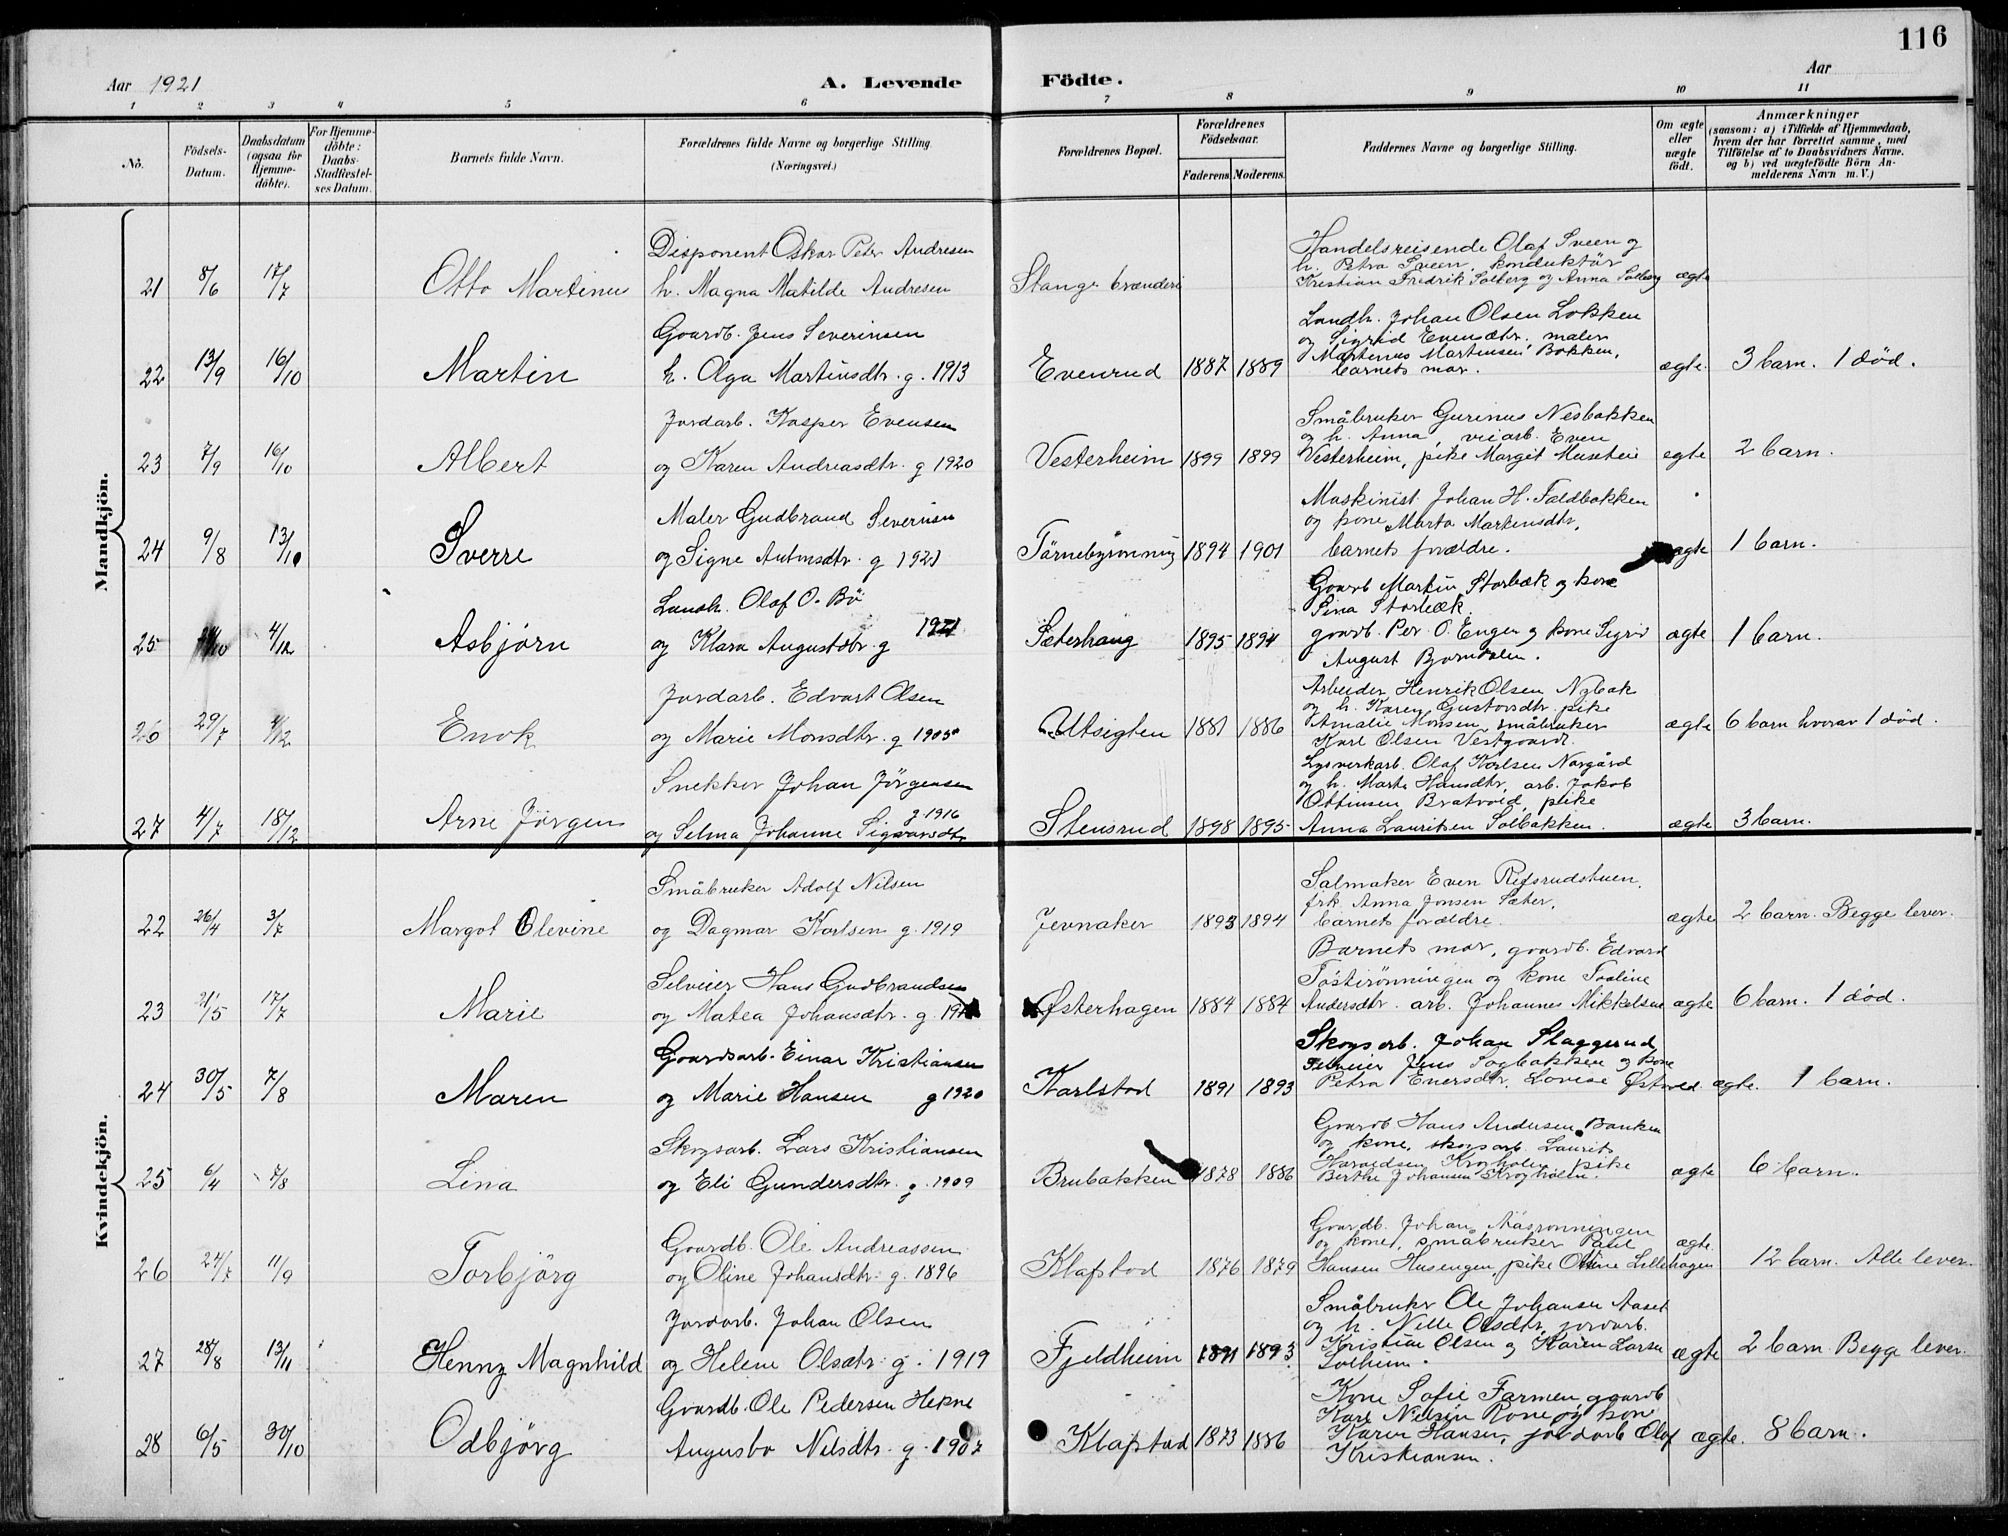 116
Aar 1921
A. Levende
Födte.
Aar
1 2 3 4 5 6 7 8 9 10 11
No.
Födsels-Datum.
Daabsdatum (ogsaa for Hjemme-döbte).
For Hjemme-döbte: Daabs-Stadfæstel-ses Datum.
Barnets fulde Navn.
Forældrenes fulde Navne og borgerlige Stilling (Næringsvei.)
Forældrenes Bopæl.
Forældrenes Födselsaar.
Faderens
Moderens.
Faddernes Navne og borgerlige Stilling.
Om ægte eller uægte födt.
Anmærkninger
(saasom: a) i Tilfælde af Hjemmedaab,
hvem der har forrettet samme, med
Tilföielse af to Daabsvidners Navne.
og b) ved uægtefödte Börn An-
melderens Navn m. V.)
Mandkjön.
Disponent Oskar Peter Andresen
Handelsreisende Olaf Sveen og
h. Petra Sveen, konduktör
21 8/6 17/7 Otto Martinus h. Magna Matilde Andresen Stange brænderi Kristian Fredrik Solberg og Anna Solberg ægte
Gaardb. Jens Severinsen
Landh. Johan Olsen Lokken
og Sigrid Evensdtr. maler
Martinus Martinsen Bakken,
22 13/9 16/10 Martin h. Olga Martinsdtr. g. 1913 Evenrud 1887 1889 barnets mor. ægte. 3 barn. 1 död.
Jordarb. Kasper Evensen
Småbruker Gurinus Nesbakken
og h. Anna, veiarb. Even
23 7/9 16/10 Albert og Karen Andreasdtr. g 1920 Vesterheim 1899 1899 Vesterheim, pike Margit Musetei ægte 2 barn.
Maler Gudbrand Severinsen
Maskinist Johan H. Fældbakken
og kone Marta Martinsdtr,
24 9/8 13/10 Sverre og Signe Antonsdtr. g 1921 Törnebyrönning 1894 1901 barnets forældre. ægte 1 barn.
Landh. Olaf O. Bö
Gaardb Martin Storbæk og kone
Sina Storbæk.
25 4/12 Asbjörn og Klara Augustsdtr. g 1921 Sæterhaug 1895 1894 gaardb. Per O. Enger og kone Sigrid ægte 1 barn.
August Bjørndalen.
Jordarb. Edvart Olsen
Arbeider Henrik Olsen Nybak
og h. Karen Gustavsdtr. pike
26 29/7 4/12 Enok og Marie Monsdtr. g 1905 Utsigten 1881 1886 Amalie Monsen, småbruker ægte 6 barn hvorav 1 död.
Karl Olsen Vestgaard.
Snekker Johan Jörgensen
Lysverkarb. Olaf Karlsen Norgård
og h. Marte Hansdtr. arb. Jakob
Ottinsen Bratvold, pike
27 4/7 18/12 Arne Jörgen og Selma Johanne Sigvarsdtr g. 1916 Stensrud 1898 1895 Anna Lauritsen Solbakken. ægte 3 barn.
Kvindekjön.
Småbruker Adolf Nilsen
Salmaker Even Refsrudstuen,
frk. Anna Jonsen Sæter,
22 26/4 3/7 Margot Olevine og Dagmar Karlsen g. 1919 Jevnaker 1893 1894 barnets forældre. ægte 2 barn. Begge lever.
Selveier Hans Gudbrandsen
Barnets mor, gaardb. Edvard
Töstirönningen og kone Tooline
23 21/5 17/7 Marie og Matea Johansdtr. g. Østerhagen 1884 1884 Andersdtr. arb. Johannes Mikkelsen ægte 6 barn. 1 död.
Gaardsarb. Einar Kristiansen
Skogsarb. Johan Slaggerud
Selveier Jens Sagbakken og kone
24 30/5 7/8 Maren og Marie Hansen g 1920 Karlstad 1891 1893 Petra Enersdtr, Lovise Østvold ægte. 1 barn.
Skogsarb. Lars Kristiansen
Gaardb Hans Andersen Banken
og kone, skogsarb Laurits
Haraldsen Krogholm pike
25 6/4 7/8 Lina og Eli Gundersdtr. g. 1909 Brubakken 1878 1886 Berthe Johansen Krogholm. ægte 6 barn.
Gaardb. Ole Andreassen
Gaardb. Johan Aasrönningen
og kone, småbruker Paul
26 24/7 11/9 Torbjörg og Oline Johansdtr. g. 1896 Klapstad 1876 1879 Hansen Husengen, pike Oline Lillehagen ægte. 12 barn. Alle lever.
Jordarb. Johan Olsen
Småbruker Ole Johansen Aaset
og h. Nelle Olsdtr, jordarb.
27 28/8 13/11 Henny Magnhild og Helene Olsdtr. g. 1919 Fjeldheim 1891 1893 Kristian Olsen og Karen Larsen ægte 2 barn. Begge lever.
Solheim.
Gaardb. Ole Pedersen Hekne
Kone Sofie Farmen, gaardb
Karl Nilsen Rone og kone
28 6/5 30/10 Odbjörg Augusta Nilsdtr. g. 1907 Klapstad 1873 1886 Karen Hansen, jordarb Olaf ægte. 8 barn.
Kristiansen.